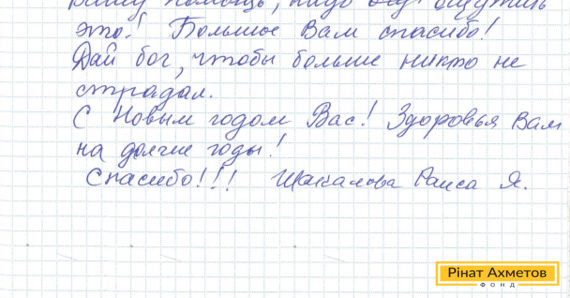 Вашу помощь, надо
это! Большое Вам спасибо!
Дай бог, чтобы больше никто не
страдал.
С Новым годом Вас! Здоровья Вам
на долгие годы!
Спасибо!!! Шакалова Раиса Я.
Рінат Ахметов
ФОНД